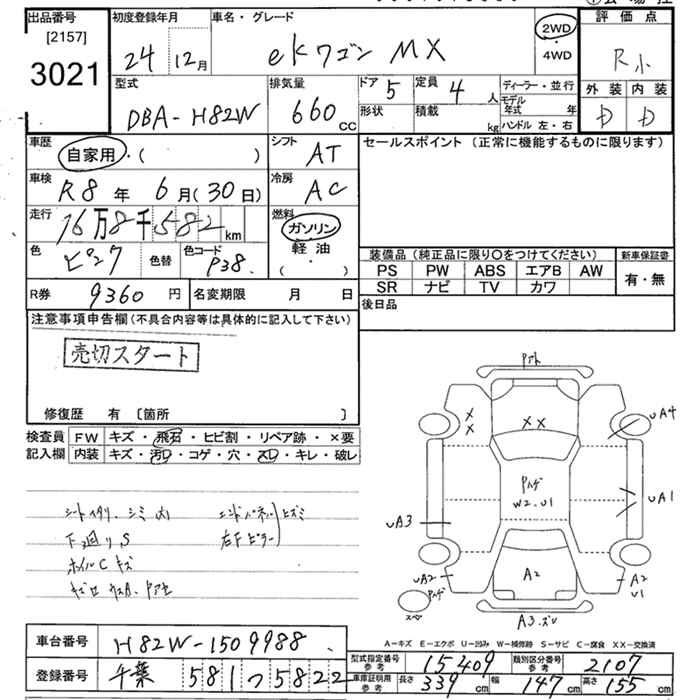 出品番号 初度登録年月 車名・グレード 2WD・4WD 評価点
[2157]
3021
24年 12月 eKワゴン MX R小
型式 排気量 ドア 定員 ディーラー・並行 外装 内装
DBA-H82W 660cc 5 4人 モデル年式 年 D D
形状 積載 kg ハンドル 左・右
車歴 自家用・( ) シフト AT セールスポイント (正常に機能するものに限ります)
車検 R8年 6月(30日) 冷房 AC
走行 16万8千582km 燃料 ガソリン・軽油・( )
色 ピンク 色替 色コード P38
装備品(純正品に限り〇をつけてください) 新車保証書
PS PW ABS エアB AW 有・無
SR ナビ TV カワ
R券 9360円 名変期限 月 日 後日品
注意事項申告欄(不具合内容等は具体的に記入して下さい)
売切スタート
修復歴 有 [箇所 ]
検査員記入欄 FW キズ・飛石・ヒビ割・リペア跡・×要
内装 キズ・汚レ・コゲ・穴・スレ・キレ・破レ
シートイタリ、シミ 内 エンドパネル ヒズミ
下廻り S 右F ピラー
ホイルC キズ
Pアト
XX
X
X
UA4
Pハゲ
W2、U1
UA1
UA3
UA2
Pハゲ
A2
A2
U1
スペア
A3.ズレ
A-キズ E-エクボ U-凹み W-補修跡 S-サビ C-腐食 XX-交換済
車台番号 H82W-1509988
登録番号 千葉 581 つ 5822
型式指定番号 参考 15409 類別区分番号 参考 2107
車庫証明用 参考 長さ 339cm 幅 147cm 高さ 155cm